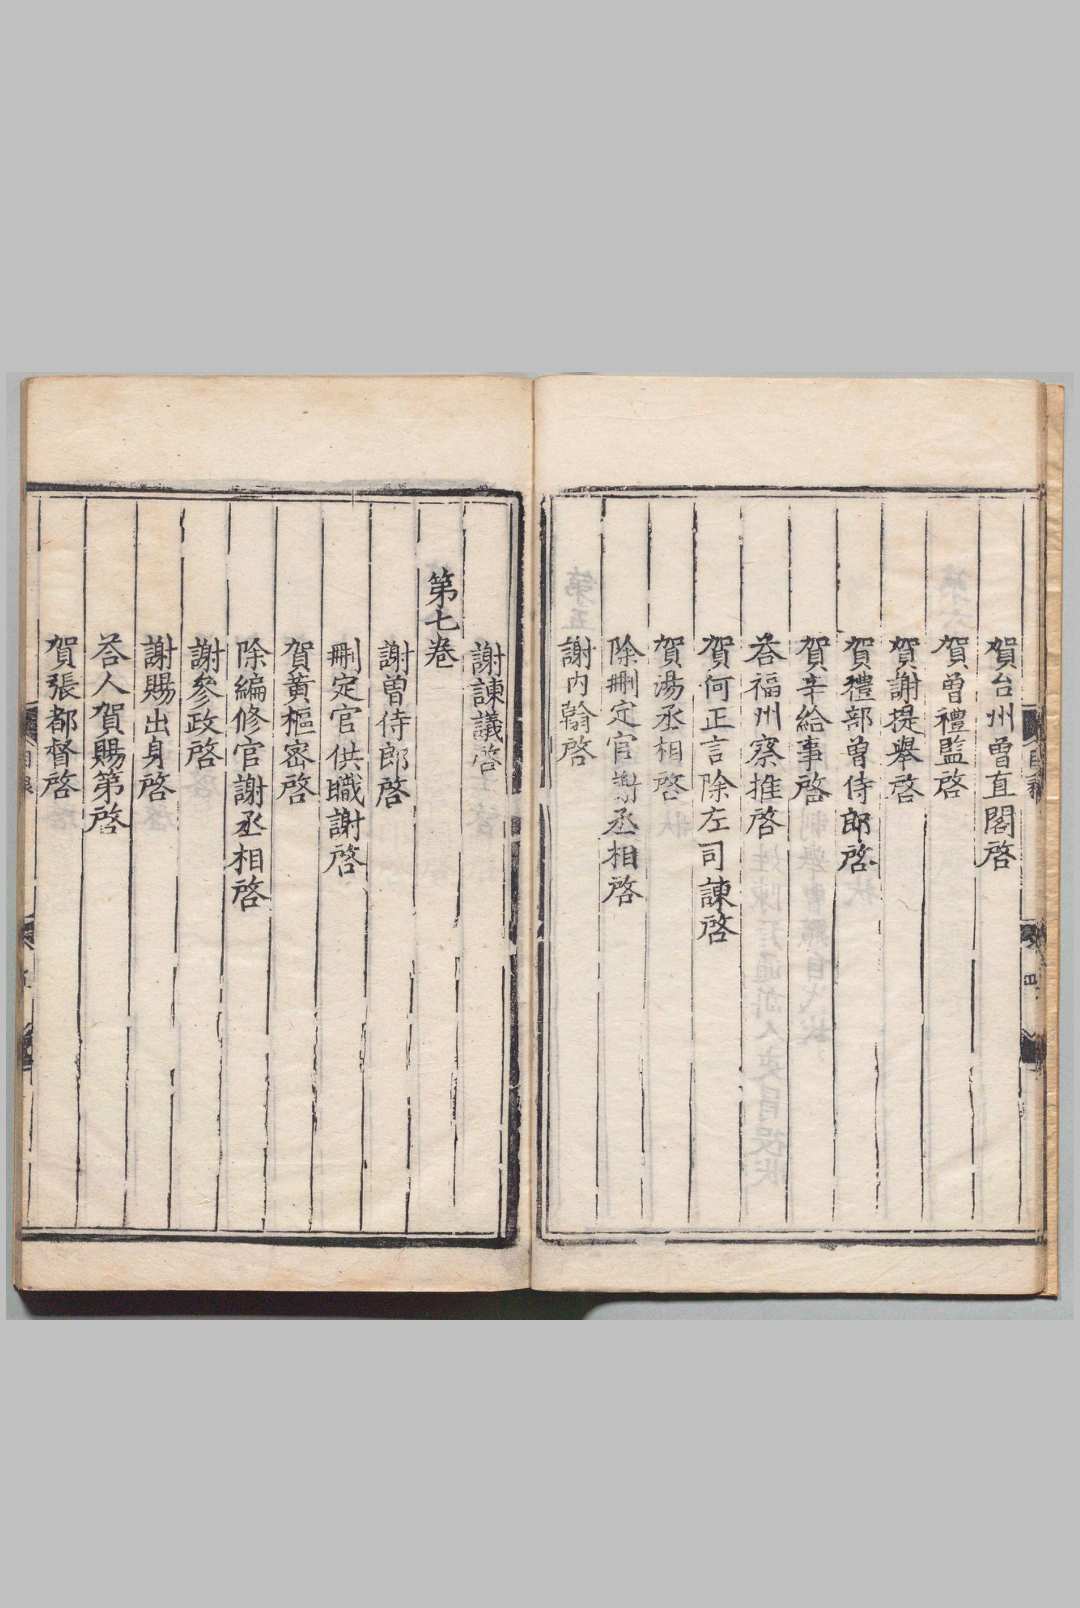 賀台州曽直閣啓
賀曽禮監啓
賀謝提舉啓
賀禮部曽侍郎啓
賀辛給事啓
荅福州察推啓
賀何正言除左司諫啓
賀湯丞相啓
除刪定官謝丞相啓
謝内翰啓
謝諫議啓
第七卷
謝曽侍郎啓
刪定官供職謝啓
賀黃樞密啓
除編修官謝丞相啓
謝參政啓
謝賜出身啓
荅人賀賜第啓
賀張都督啓